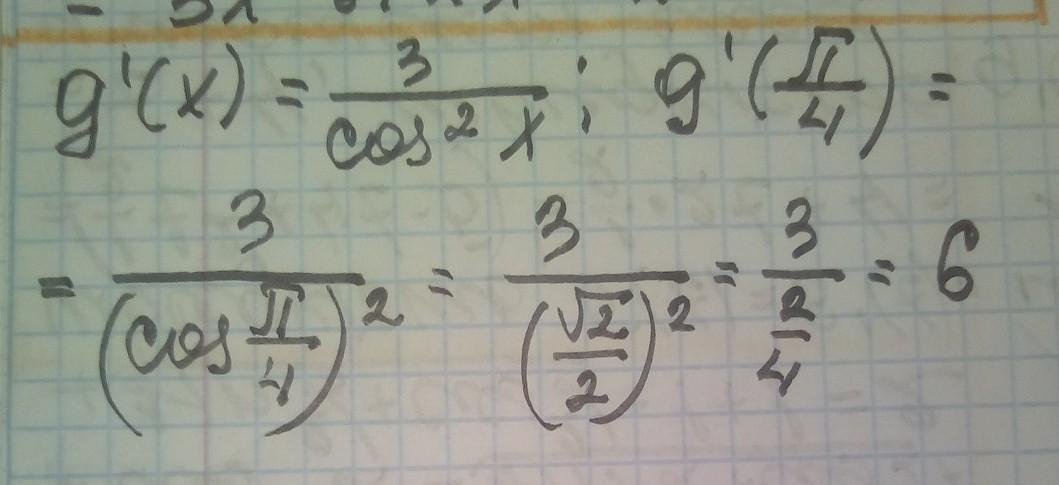 g'(x) = 3/cos² x ; g'(π/4) =
= 3/(cos π/4)² = 3/(√2/2)² = 3/(2/4) = 6